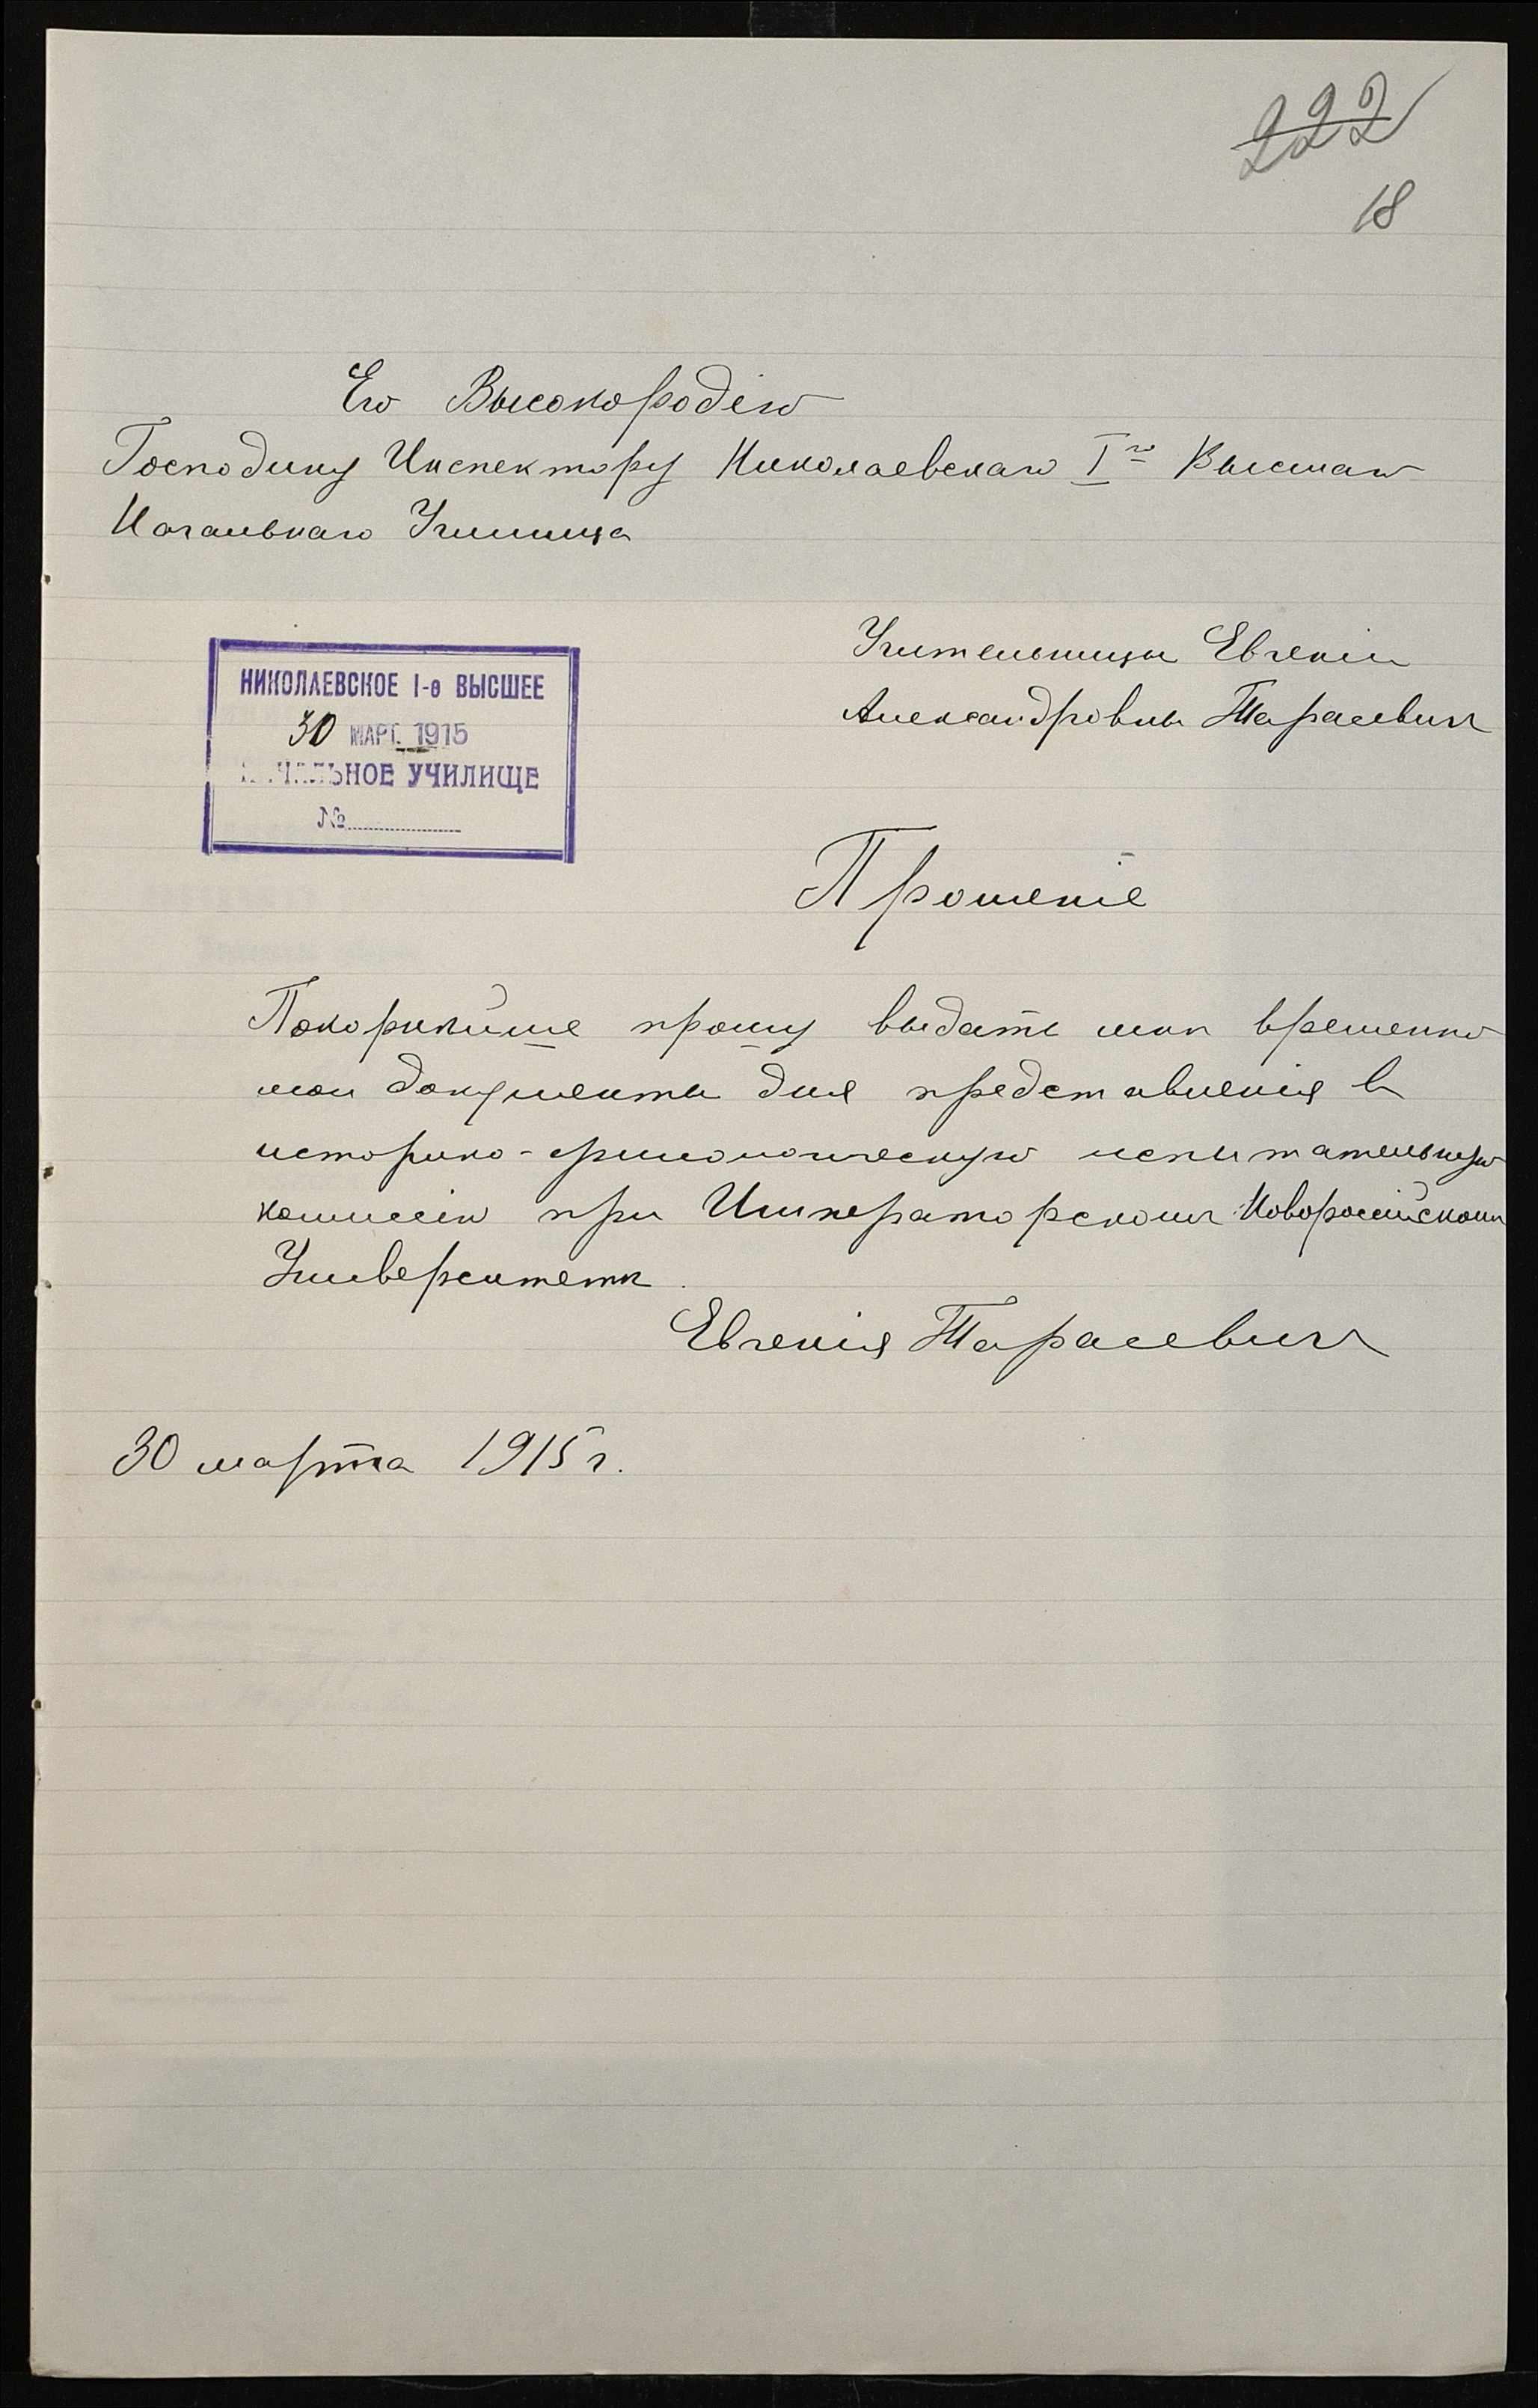 222
18
Его Высокородію
Господину Инспектору Николаевскаго I го Высшаго
Начальнаго Училища
Учительницы Евгеніи
Александровны Тарасевичъ
НИКОЛАЕВСКОЕ I-е ВЫСШЕЕ
30 МАРТ. 1915
НАЧАЛЬНОЕ УЧИЛИЩЕ
№
Прошеніе
Покорнѣйше прошу выдать мнѣ временно
мои документы для представленія въ
историко-филологическую испытательную
комиссію при Императорскомъ Новороссійскомъ
Университетѣ.
Евгенія Тарасевичъ
30 марта 1915 г.